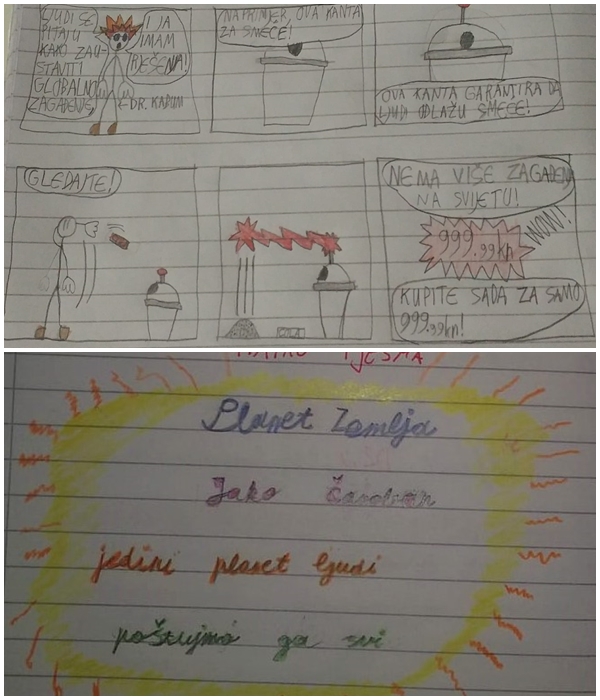 LJUDI SE
PITAJU
KAKO ZAU-
STAVITI
GLOBALNO
ZAGAĐENJE,
I JA
IMAM
RJEŠENJA!
←DR. KABUM
NAPRIMJER, OVA KANTA
ZA SMEĆE!
OVA KANTA GARANTIRA DA
LJUDI ODLAŽU SMEĆE!
GLEDAJTE!
COLA
NEMA VIŠE ZAGAĐENJA
NA SVIJETU!
999.99kn
WOW!
KUPITE SADA ZA SAMO
999.99kn!
PJESMA
Planet Zemlja
Jako čaroban
jedini planet ljudi
poštujmo ga svi